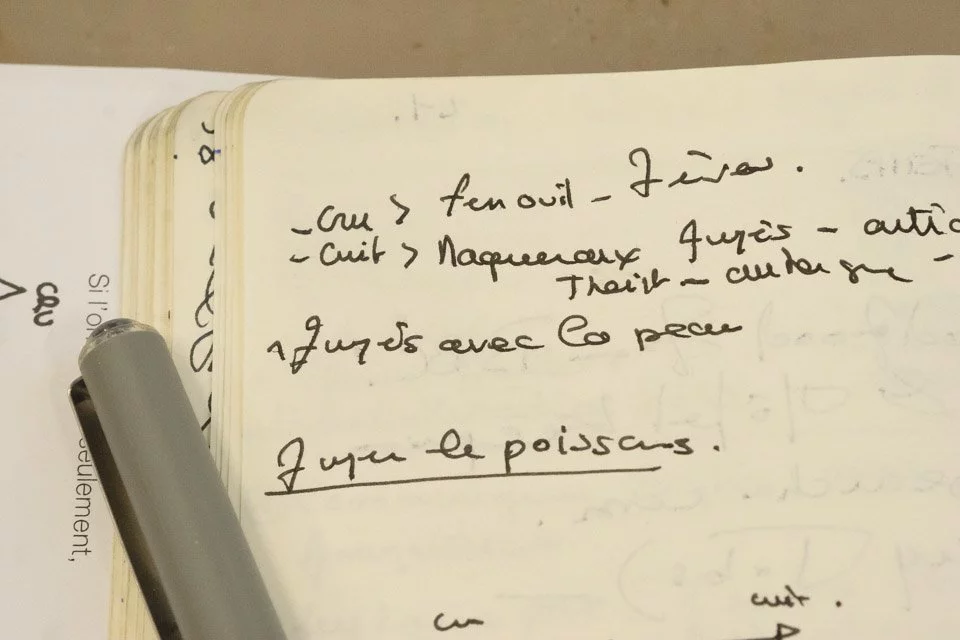 - Cru > fenouil - Fèves.
- Cuit > Maqueraux fumés - artic
- aubergine -
fumés avec la peau
Fumer le poissons.
cru
cuit.
Si l'o
seulement,
cru